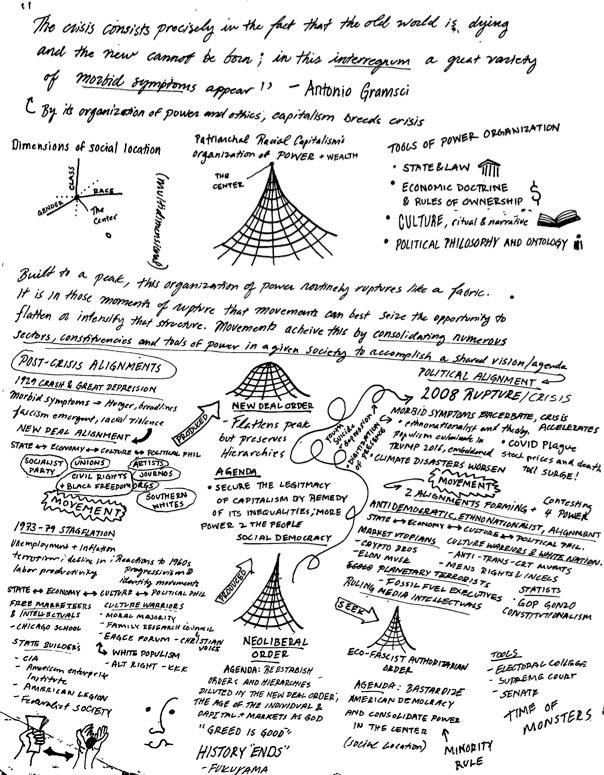 "
The crisis consists precisely in the fact that the old world is dying
and the new cannot be born; in this interregnum a great variety
of morbid symptoms appear!" - Antonio Gramsci
By its organization of power and ethics, capitalism breeds crisis
Dimensions of social location
CLASS
RACE
GENDER
The Center
(multidimensional)
Patriarchal Racial Capitalism's
organization of POWER + WEALTH
THE CENTER
TOOLS OF POWER ORGANIZATION
• STATE & LAW
• ECONOMIC DOCTRINE
& RULES OF OWNERSHIP
• CULTURE, ritual & narrative
• POLITICAL PHILOSOPHY AND ONTOLOGY
Built to a peak, this organization of power routinely ruptures like a fabric.
It is in those moments of rupture that movements can best seize the opportunity to
flatten or intensify that structure. Movements acheive this by consolidating numerous
sectors, constituencies and tools of power in a given society to accomplish a shared vision/agenda
POLITICAL ALIGNMENT
POST-CRISIS ALIGNMENTS
1929 CRASH & GREAT DEPRESSION
Morbid symptoms → Hunger, breadlines
fascism emergent, racial violence
NEW DEAL ALIGNMENT
STATE ↔ ECONOMY ↔ CULTURE ↔ POLITICAL PHIL
SOCIALIST PARTY
UNIONS
ARTISTS
JOURNOS
CIVIL RIGHTS
+ BLACK FREEDOM ORGS
SOUTHERN WHITES
MOVEMENTS
PRODUCED
NEW DEAL ORDER
- Flattens peak
but preserves
Hierarchies
AGENDA
• SECURE THE LEGITIMACY
OF CAPITALISM BY REMEDY
OF ITS INEQUALITIES; MORE
POWER 2 THE PEOPLE
SOCIAL DEMOCRACY
1973-79 STAGFLATION
Unemployment + Inflation
terrorism; decline in
labor productivity
Reactions to 1960s
progressivism &
identity movements
STATE ↔ ECONOMY ↔ CULTURE ↔ POLITICAL PHIL
FREE MARKETEERS
& INTELLECTUALS
- CHICAGO SCHOOL
CULTURE WARRIORS
- MORAL MAJORITY
- FAMILY RESEARCH COUNCIL
- EAGLE FORUM - CHRISTIAN VOICE
STATE BUILDERS
- CIA
- American enterprise
Institute
- AMERICAN LEGION
- Federalist SOCIETY
WHITE POPULISM
- ALT RIGHT - KKK
PRODUCED
NEOLIBERAL
ORDER
AGENDA: REESTABLISH
ORDERS AND HIERARCHIES
DILUTED IN THE NEW DEAL ORDER;
THE AGE OF THE INDIVIDUAL &
CAPITAL: MARKETS AS GOD
"GREED IS GOOD"
HISTORY "ENDS"
- FUKUYAMA
2008 RUPTURE/CRISIS
MORBID SYMPTOMS EXACERBATE, CRISIS
ACCELERATES
• ethnonationalist and
Populism culminate in
TRUMP 2016, emboldened
• COVID Plague
stock prices and death
toll SURGE!
• CLIMATE DISASTERS WORSEN
MOVEMENTS
2 ALIGNMENTS FORMING + Contesting
4 POWER
ANTIDEMOCRATIC, ETHNONATIONALIST, ALIGNMENT
STATE ↔ ECONOMY ↔ CULTURE ↔ POLITICAL PHIL.
MARKET UTOPIANS
- CRYPTO BROS
- ELON MUSK
CULTURE WARRIORS & WHITE NATION.
- ANTI-TRANS-CRT MVMTS
- MENS RIGHTS/INCELS
PLANETARY TERRORISTS
- FOSSIL FUEL EXECUTIVES
RULING MEDIA INTELLECTUALS
STATISTS
- GOP GONZO
CONSTITUTIONALISM
SEEK
ECO-FASCIST AUTHORITARIAN
ORDER
AGENDA: BASTARDIZE
AMERICAN DEMOCRACY
AND CONSOLIDATE POWER
IN THE CENTER
(Social Location)
MINORITY
RULE
TOOLS
- ELECTORAL COLLEGE
- SUPREME COURT
- SENATE
TIME OF
MONSTERS